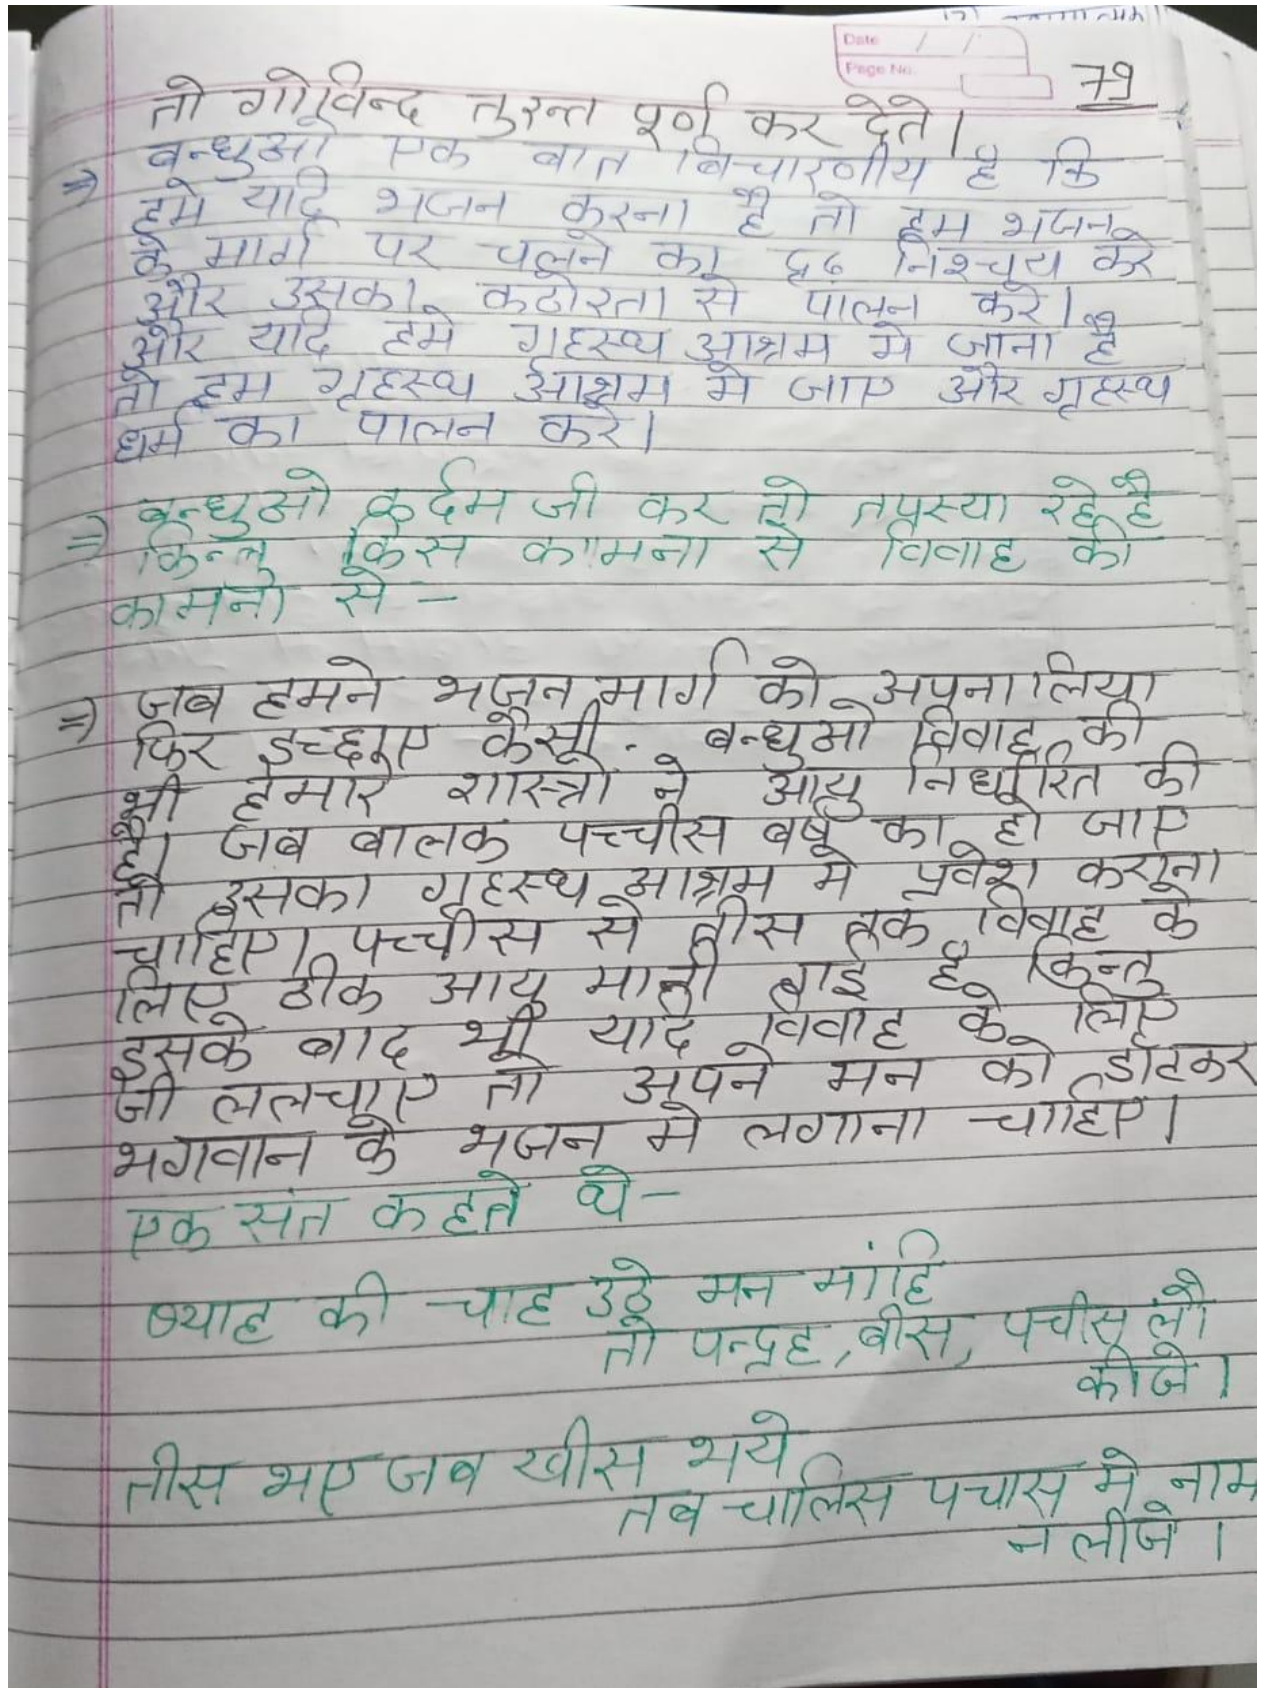 Date / /
Page No.
79
तो गोविन्द तुरन्त पूर्ण कर देते।
⇒ बन्धुओ एक बात विचारणीय है कि
हमे यदि भजन करना है तो हम भजन
के मार्ग पर चलने का दृढ निश्चय करे
और उसका कठोरता से पालन करे।
और यदि हमे गृहस्थ आश्रम मे जाना है
तो हम गृहस्थ आश्रम मे जाए और गृहस्थ
धर्म का पालन करे।
⇒ बन्धुओ कर्दम जी कर तो तपस्या रहे है
किन्तु किस कामना से विवाह की
कामना से -
⇒ जब हमने भजन मार्ग को अपना लिया
फिर इच्छाए कैसी. बन्धुओ विवाह की
भी हमारे शास्त्रो ने आयु निर्धारित की
है। जब बालक पच्चीस बर्ष का हो जाए
तो उसका गृहस्थ आश्रम मे प्रवेश कराना
चाहिए। पच्चीस से तीस तक विवाह के
लिए ठीक आयु मानी गाई है किन्तु
इसके बाद भी यदि विवाह के लिए
जी ललचाए तो अपने मन को डाटकर
भगवान के भजन मे लगाना चाहिए।
एक संत कहते थे -
ब्याह की चाह उठे मन मांहि
तो पन्द्रह, बीस, पचीस लौ
कीजे।
तीस भए जब खीस भये
तब चालिस पचास मे नाम
न लीजे।